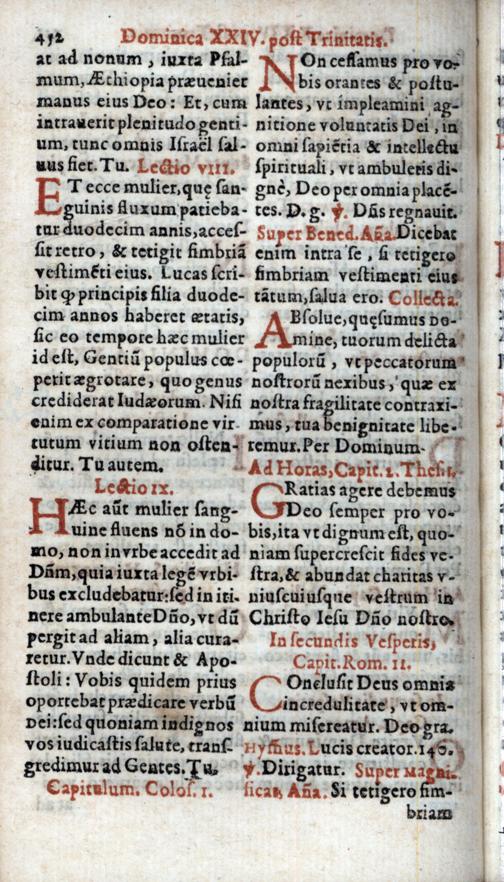 452 Dominica XXIV. post Trinitatis.
at ad nonum, iuxta Psal-
mum, Æthiopia præueniet
manus eius Deo: Et, cum
intrauerit plenitudo genti-
um, tunc omnis Israël sal-
uus fiet. Tu. Lectio viii.
ET ecce mulier, quę san-
guinis fluxum patieba-
tur duodecim annis, acces-
sit retro, & tetigit fimbriā
vestimēti eius. Lucas scri-
bit ꝙ principis filia duode-
cim annos haberet ætatis,
sic eo tempore hæc mulier
id est, Gentiū populus cœ-
perit ægrotare, quo genus
crediderat Iudæorum. Nisi
enim ex comparatione vir-
tutum vitium non osten-
ditur. Tu autem.
Lectio ix.
HÆc aūt mulier sang-
uine fluens nō in do-
mo, non invrbe accedit ad
Dn̄m, quia iuxta legē vrbi-
bus excludebatur: sed in iti-
nere ambulante Dn̄o, vt dū
pergit ad aliam, alia cura-
retur. Vnde dicunt & Apo-
stoli: Vobis quidem prius
oportebat prædicare verbū
Dei: sed quoniam indignos
vos iudicastis salute, trans-
gredimur ad Gentes. Tu.
Capitulum. Colos. 1.
NOn cessamus pro vo-
bis orantes & postu-
lantes, vt impleamini ag-
nitione voluntatis Dei, in
omni sapiētia & intellectu
spirituali, vt ambuletis di-
gnè, Deo per omnia placē-
tes. D. g. ℣. Dn̄s regnauit.
Super Bened. Añа. Dicebat
enim intra se, si tetigero
fimbriam vestimenti eius
tātum, salua ero. Collecta.
ABsolue, quęsumus Do-
mine, tuorum delicta
populorū, vt peccatorum
nostrorū nexibus, quæ ex
nostra fragilitate contraxi-
mus, tua benignitate libe-
remur. Per Dominum.
Ad Horas, Capit. 2. Thess.
GRatias agere debemus
Deo semper pro vo-
bis, ita vt dignum est, quo-
niam supercrescit fides ve-
stra, & abundat charitas v-
niuscuiusque vestrum in
Christo Iesu Dn̄o nostro.
In secundis Vesperis,
Capit. Rom. 11.
COnclusit Deus omnia
incredulitate, vt om-
nium misereatur. Deo gra.
Hymnus. Lucis creator. 140.
℣. Dirigatur. Super Magni-
ficat, Añа. Si tetigero fim-
briam